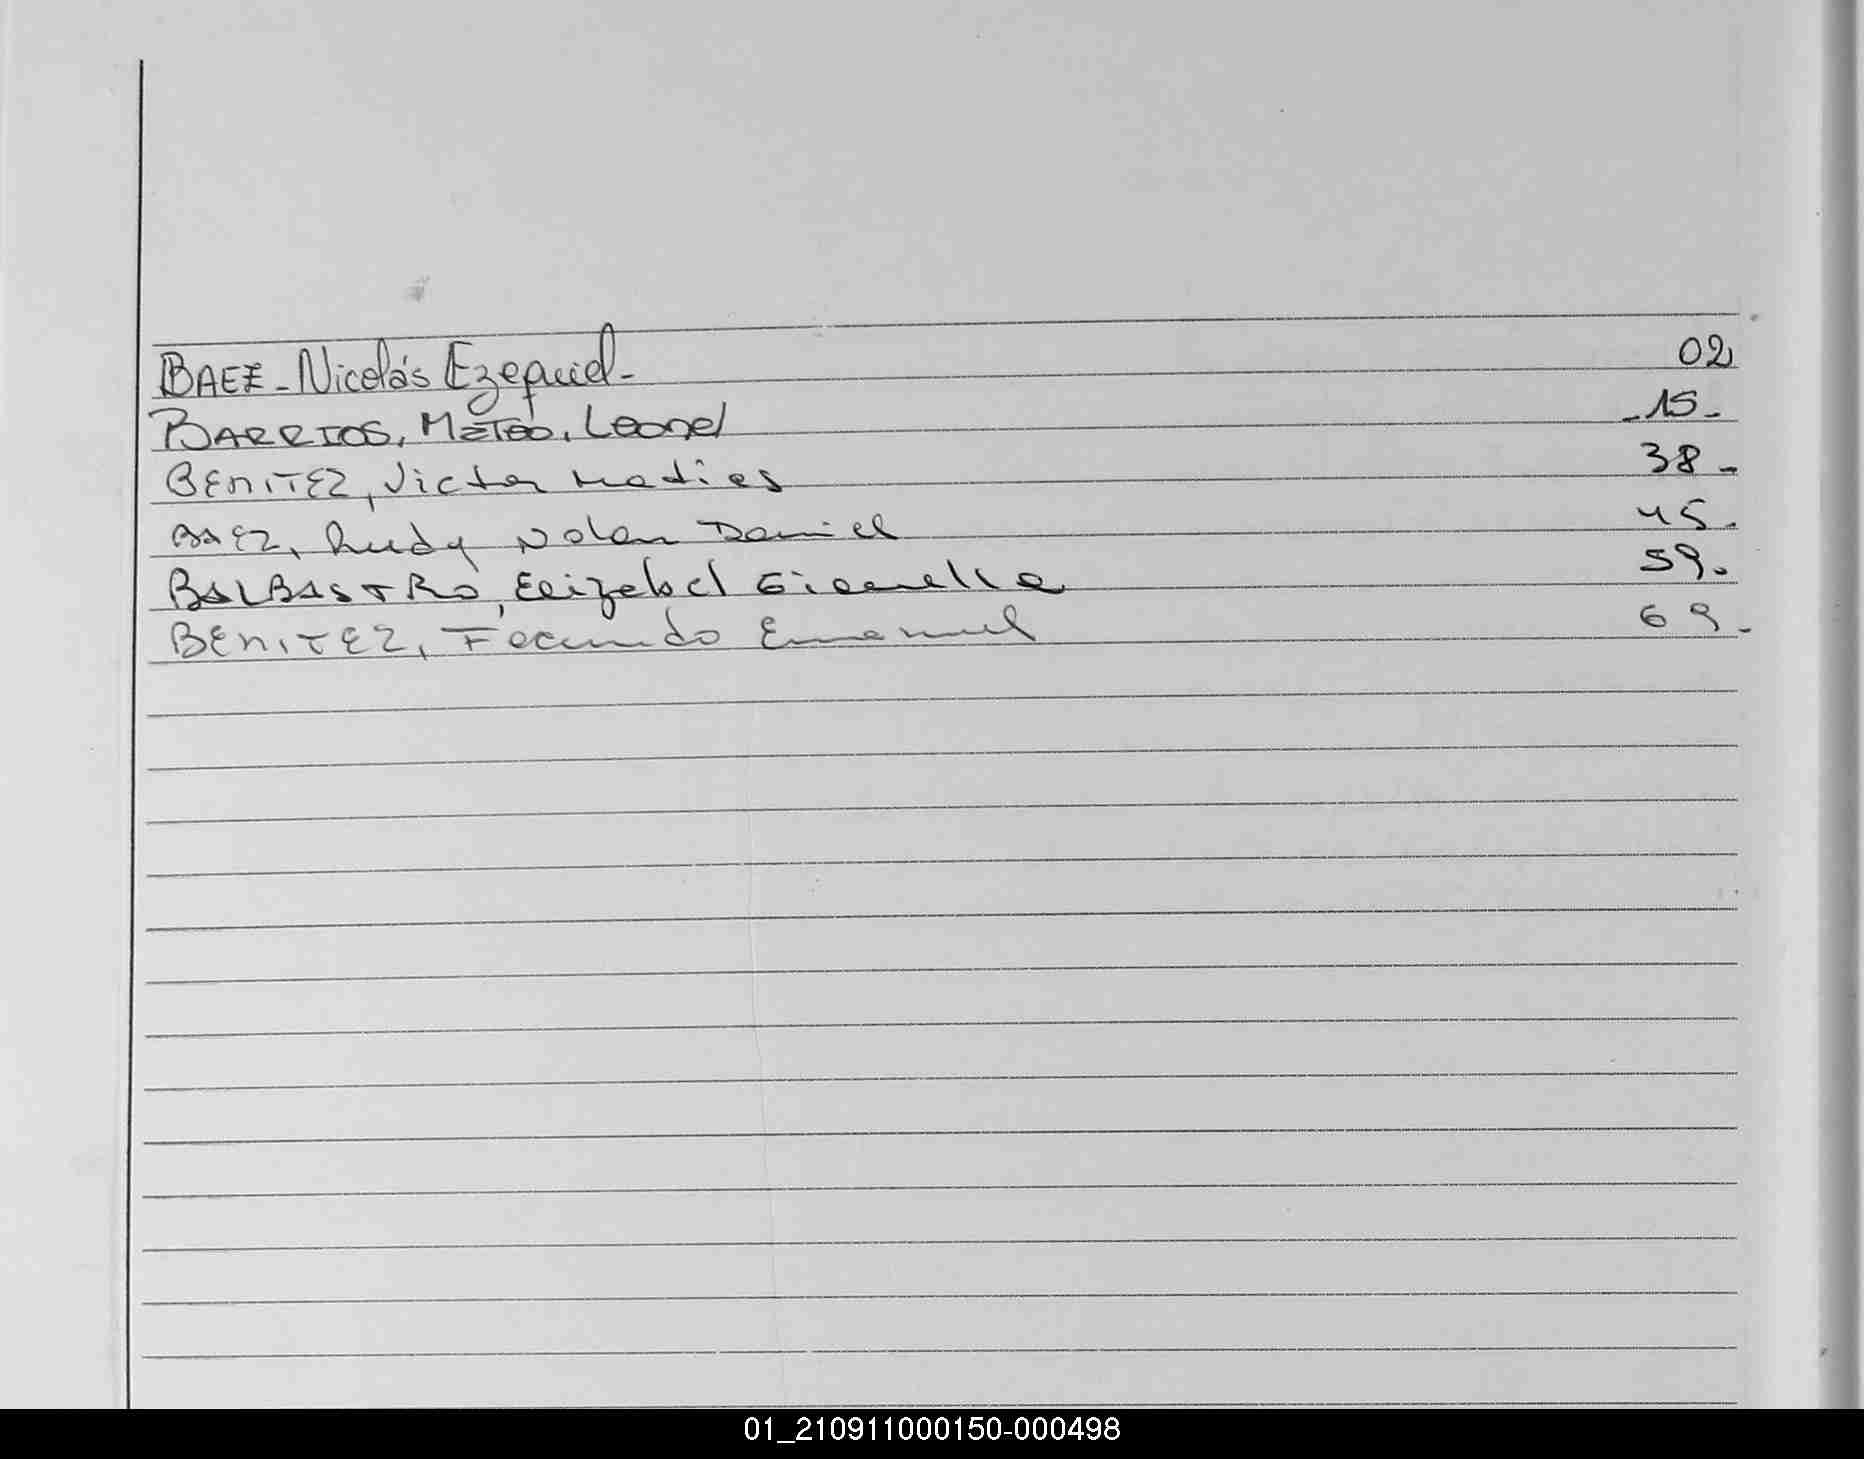 BAEZ - Nicolás Ezequiel - 02
BARRIOS, Mateo, Leonel - 15 -
BENITEZ, Victor Matias 38 -
BAEZ, Rudy Nolan Daniel 45.
BALBASTRO, Elizabet Gianella 59.
BENITEZ, Facundo Emanuel 69.
01_210911000150-000498